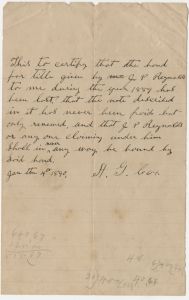 This to certify that the bond
for title given by me J P Reynolds
to me during the year 1889 has
been lost, that the note described
in it has never been paid but
only renewed, and that J P Reynolds
or any one claiming under him
shall in any way be bound by
said bond.
Jan the 4th 1890. H. G. Cox